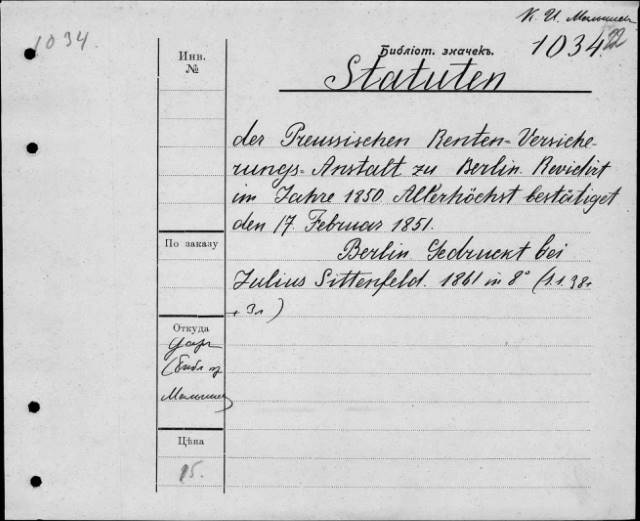 К. И. Малышев
1034.
1034
22
Инв.
№
Библіот. значекъ.
Statuten
der Preussischen Renten-Versiche-
rungs-Anstalt zu Berlin. Revidirt
im Jahre 1850 Allerhöchst bestätiget
den 17. Februar 1851.
По заказу
Berlin Gedruckt bei
Julius Sittenfeld. 1861 in 8° (1.1.38.
+ 3л)
Откуда
Даръ
(Библ
Малышев)
Цѣна
15.